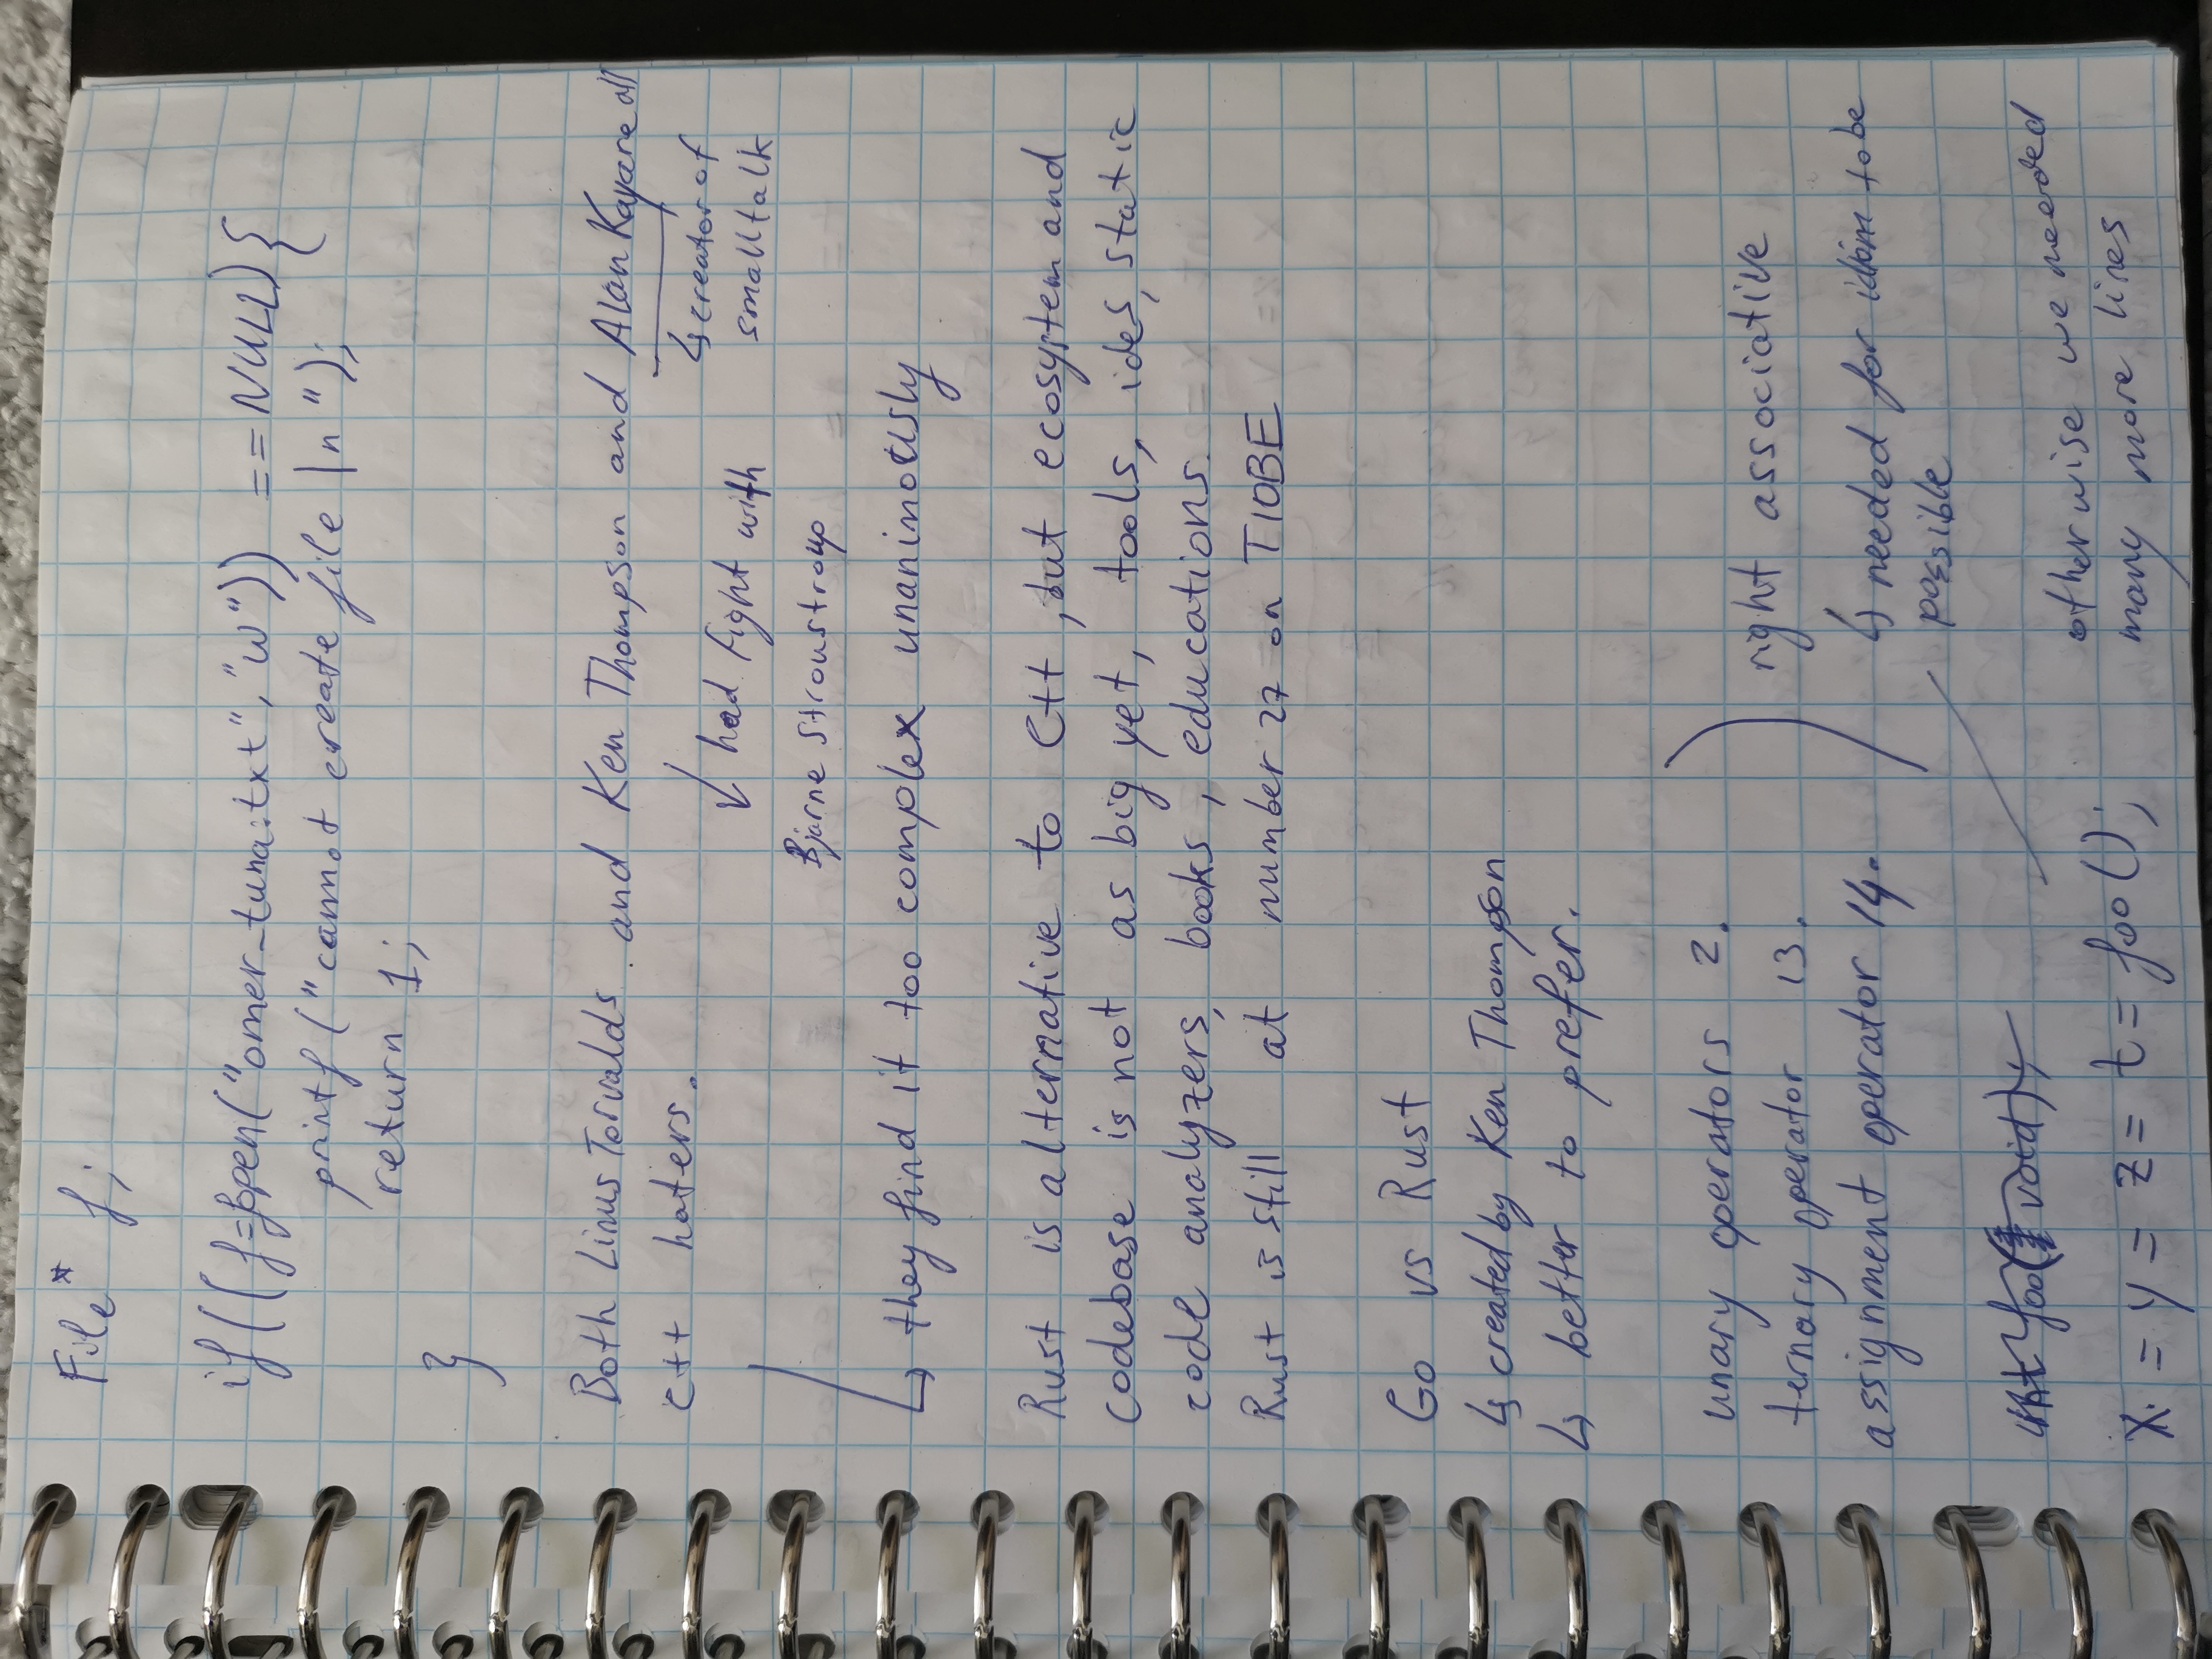 File* f;
if((f=fopen("omer_tuna.txt", "w")) == NULL){
printf("cannot create file \n");
return 1;
}
Both Linus Torvalds. and Ken Thompson and Alan Kay are all
C++ haters.
↳ creator of
smalltalk
↓ had fight with
Bjarne Stroustroup
↳ they find it too complex unanimously
Rust is alternative to C++, but ecosystem and
codebase is not as big yet, tools, ides, static
code analyzers, books, educations.
Rust is still at number 27 on TIOBE
Go vs Rust
↳ created by Ken Thompson
↳ better to prefer.
unary operators 2.
ternary operator 13.
assignment operator 14.
right associative
↳ needed for idiom to be
possible
int foo(void);
x = y = z = t = foo();
otherwise we needed
many more lines